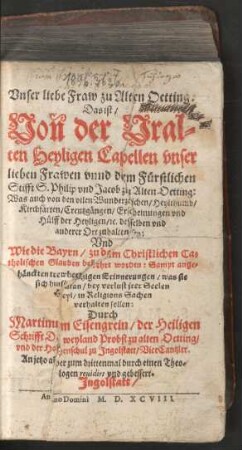 Unser liebe Fraw zu Alten Oetting:
Das ist /
Von der Vral-
ten Heyligen Capellen unser
lieben Frawen vnnd dem Fürstlichen
Stifft S. Philip vnd Jacob zů Alten Oetting:
Was auch von den vilen Wunderzeichen / Heylthumb /
Kirchfärten / Creutzgängen / Erscheinungen vnd
Hülff der Heyligen / etc. desselben vnd
anderer Ort zuhalten sey:
Vnd
Wie die Bayrn / zu dem Christlichen Ca-
tholischen Glauben bekehrt worden: Sampt ange-
henckten trewhertzigen Erinnerungen / was sie
sich hierinnen / bey verlust jrer Seelen
Heyl / in Religions Sachen
verhalten sollen:
Durch
Martinum Eisengrein / der Heiligen
Schrifft D. weyland Probst zu alten Oetting /
vnd der Hohenschul zu Ingolstatt / ViceCantzler.
An jetzo aber zum drittenmal durch einen Theo-
logen revidirt vnd gebessert.
Ingolstatt /
Anno Domini M. D. XCVIII.